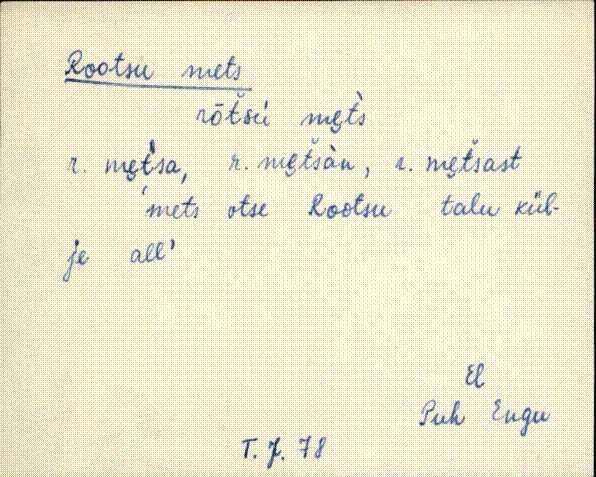 Rootsu mets
rōt̆šu̇ mę̆t̀s
r. mę̆t̀sa, r. mę̆t̆šàn, r. mę̆t̆šast
'mets otse Rootsu talu kül-
je all'
El
Puh Engu
T. J. 78